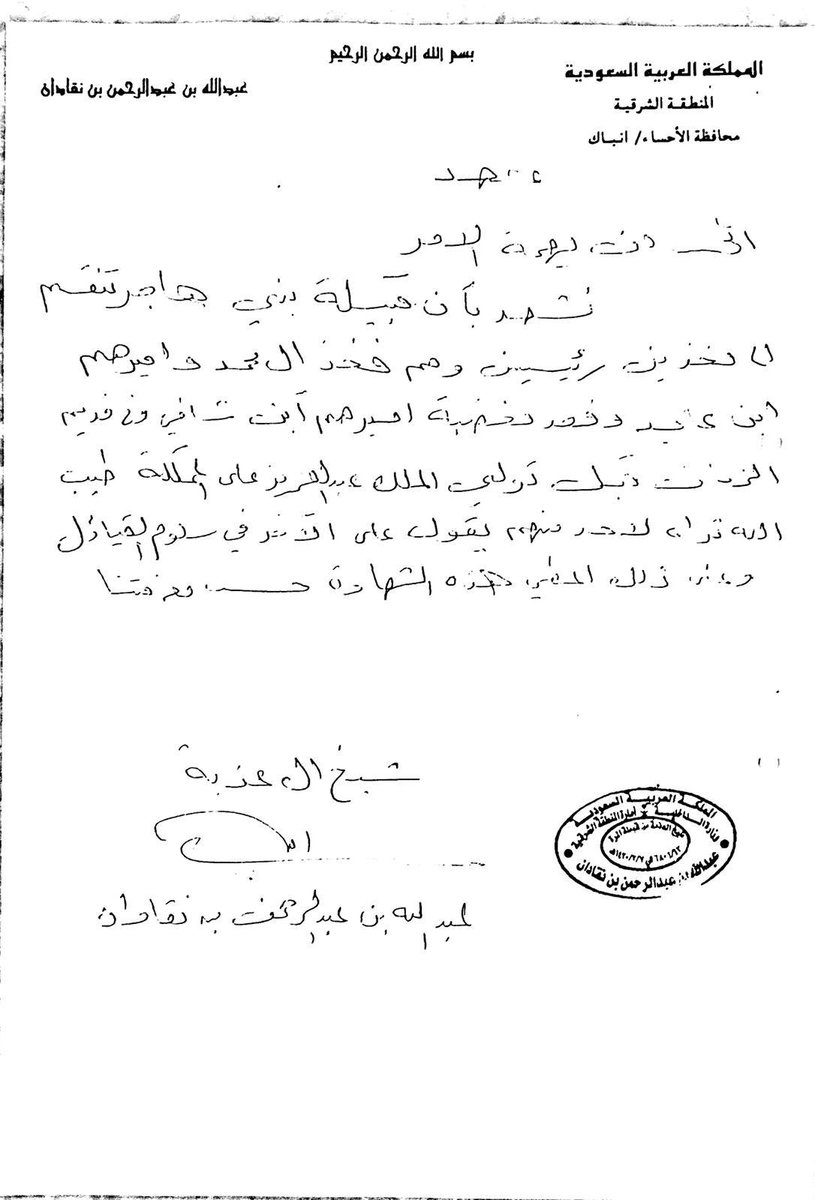 بسم الله الرحمن الرحيم
المملكة العربية السعودية
المنطقة الشرقية
محافظة الأحساء/ انباك
عبدالله بن عبدالرحمن بن نقادان
الى من يهمه الامر
نشهد بأن قبيلة بني هاجر تنقسم
لفخذين رئيسين وهم فخذ ال محمد واميرهم
ابن وفخذ اميرهم ابن شافي وفي قديم
الزمان قبل تولي الملك عبدالعزيز على المملكة طيب
الله ثراه لاحد منهم يقول على الآخر في سلوم القبايل
ذلك اعطي هذه الشهادة حسب معرفتنا
شيخ ال عذبة
عبدالله بن عبدالرحمن بن نقادان
المملكة العربية السعودية
وزارة الداخلية
امارة المنطقة الشرقية
عبدالله بن عبدالرحمن بن نقادان